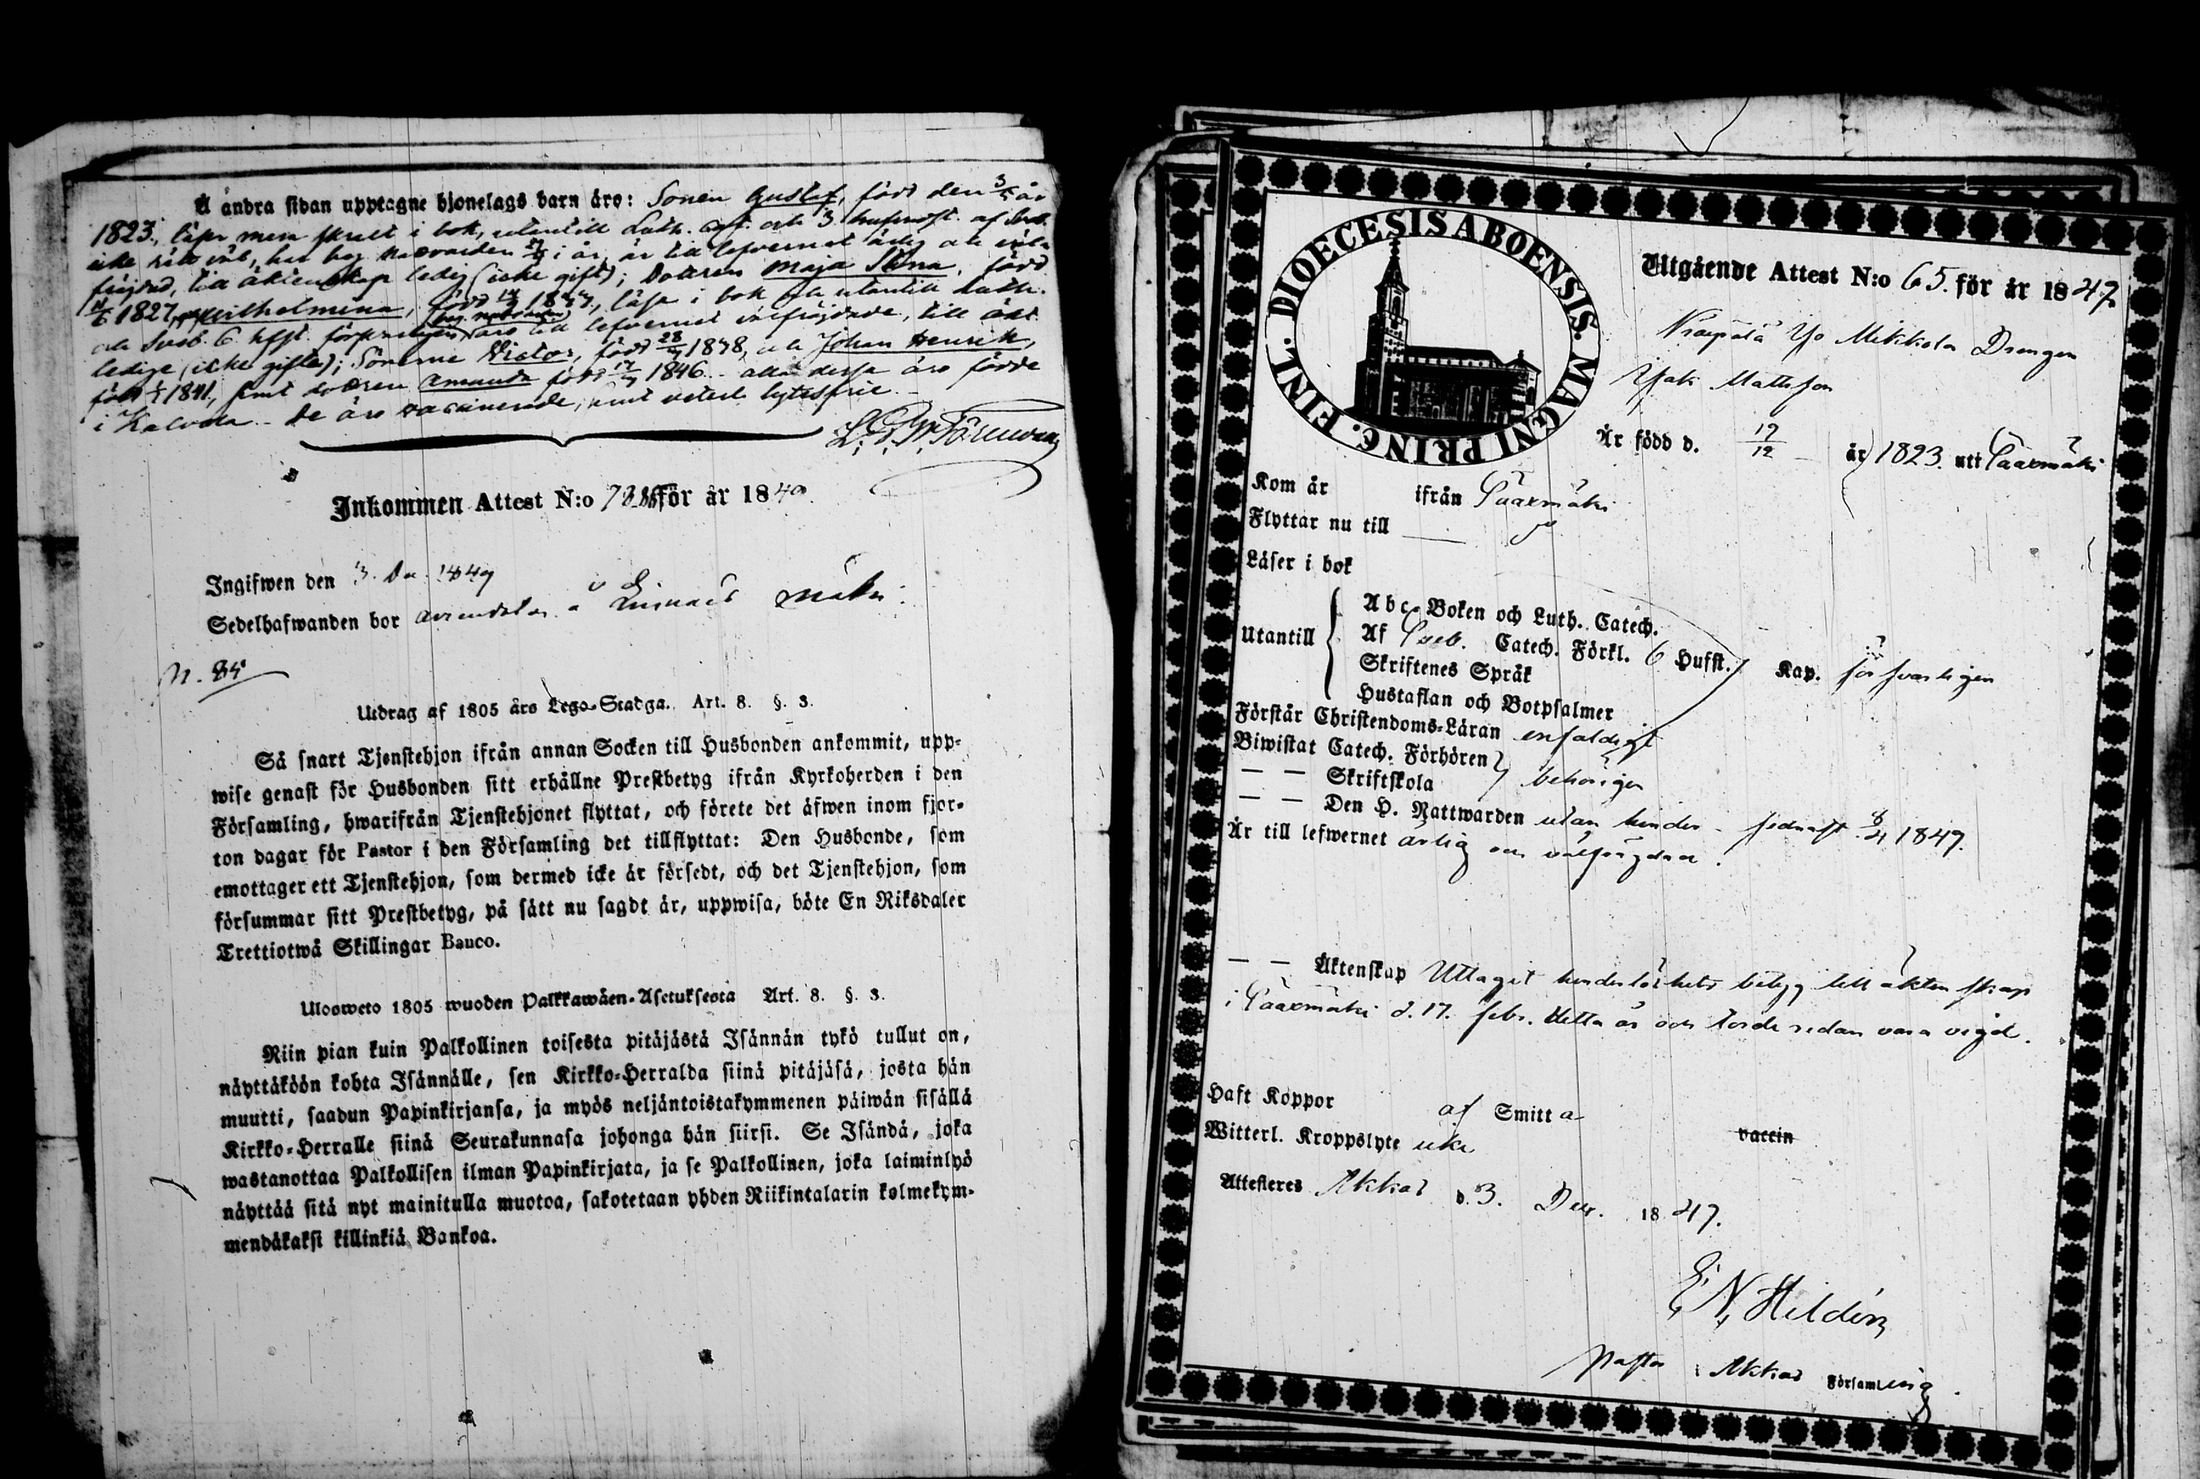 Å andra sidan upptagne hjonelags barn äro: Sonen Gustaf, född den 3/5 år
1823, läser men skralt i bok, utantill Luth. Cat. och 3 hufvudst. af Sveb.
icke rätt väl, har beg. nattvarden i år, är till lefvernet ärlig och väl
frägdad, till äktenskap ledig (icke gift); Dottren Maja Stina, född
1827, Wilhelmina, född läser i bok och utantill Luth.
beg. nattvarden
och Sveb. 6 hfst. försvarligen äro till lefvernet välfrägdade, till äkt.
ledige (icke gifta); Sönerne Victor, född 28 1838, och Johan Henrik,
född 1841, samt dottren Amanda född 17 1846 - alla dessa äro födde
i Kalvola. De äro vaccinerade, samt veterl. lytesfrie.
Inkommen Attest N:o för år 1849
Ingifwen den 3. Dec. 1849
Sedelhafwanden bor arrendator å mäki.
N. 85
Utdrag af 1805 års Lego-Stadga. Art. 8. §. 3.
Så snart Tjenstehjon ifrån annan Socken till Husbonden ankommit, upp-
wise genast för Husbonden sitt erhållne Prestbetyg ifrån Kyrkoherden i den
Församling, hwarifrån Tjenstehjonet flyttat, och förete det äfwen inom fjor-
ton dagar för Pastor i den Församling det tillflyttat: Den Husbonde, som
emottager ett Tjenstehjon, som dermed icke är försedt, och det Tjenstehjon, som
försummar sitt Prestbetyg, på sätt nu sagdt är, uppwisa, böte En Riksdaler
Trettiotwå Skillingar Banco.
Ulosweto 1805 wuoden Palkkawäen-Asetuksesta Art. 8. §. 3.
Niin pian kuin Palkollinen toisesta pitäjästä Isännän tykö tullut on,
näyttäköön kohta Isännälle, sen Kirkko-Herralda siinä pitäjäsä, josta hän
muutti, saadun Papinkirjansa, ja myös neljäntoistakymmenen päiwän sisällä
Kirkko-Herralle siinä Seurakunnasa johonga hän siirsi. Se Isändä, joka
wastanottaa Palkollisen ilman Papinkirjata, ja se Palkollinen, joka laiminlyö
näyttää sitä nyt mainitulla muotoa, sakotetaan yhden Riikintalarin kolmekym-
mendäkaksi killinkiä Bankoa.
DIOECESIS ABOENSIS. MAGNI PRINC. FINL.
Utgående Attest N:o 65. för år 1847
Mikkola Drengen
Isak Mattsson
Är född d. 17/12 år 1823. uti Sääxmäki
Kom år ifrån Sääxmäki
Flyttar nu till
Läser i bok
Utantill
Abc-Boken och Luth. Catech.
Af Sveb. Catech. Förkl. 6 Hufst. Kap. försvarligen
Skriftenes Språk
Hustaflan och Botpsalmer
Förstår Christendoms-Läran enfaldigt
Biwistat Catech. Förhören
— — Skriftskola behörigen
— — Den H. Nattwarden utan hinder. sednast 1847.
Är till lefwernet ärlig och välfrägdad.
— — Äktenskap Uttagit hinderlöshets betyg till äktenskap
i Sääxmäki d. 17. febr. detta år och torde redan vara vigd.
Haft Koppor af Smitta vaccin
Witterl. Kroppslyte icke
Attesteres Akkas d. 3. Dec. 1847.
E. N. Hildén
Pastor i Akkas Församling.